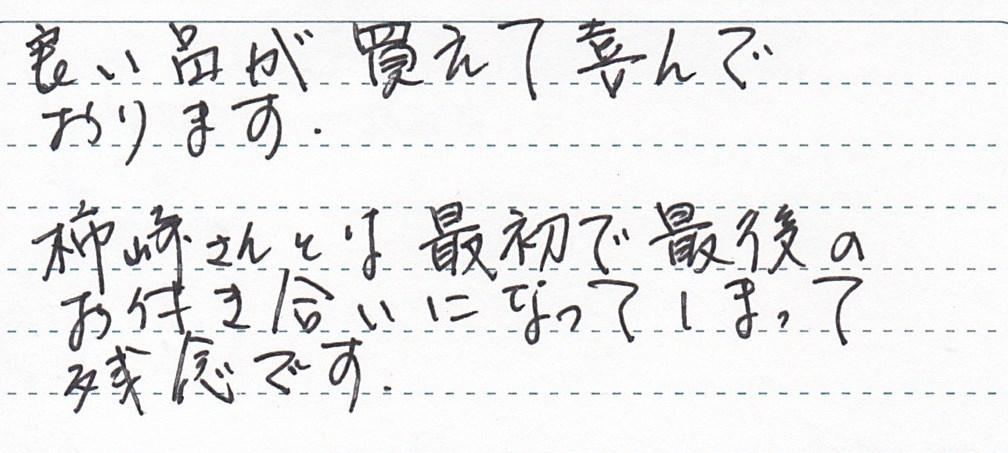 良い品が買えて喜んで
おります.
柿崎さんとは最初で最後の
お付き合いになってしまって
残念です.